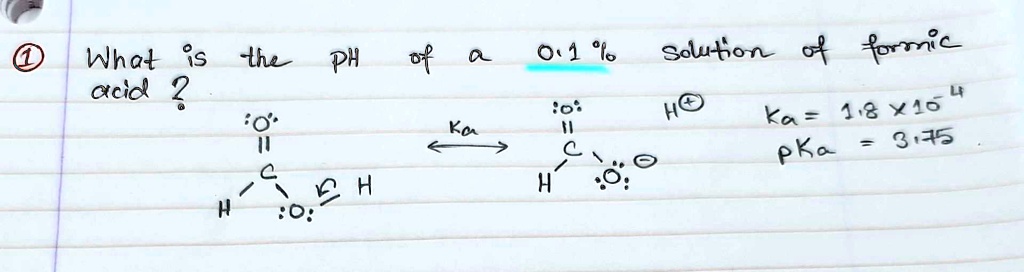 ① What is the pH of a 0.1 % solution of formic
acid ?
:O: Ka :O: H⊕ Ka = 1.8 x 10⁻⁴
|| ⟷ || pKa = 3.75
C C ⊖
H :O: H H :O: